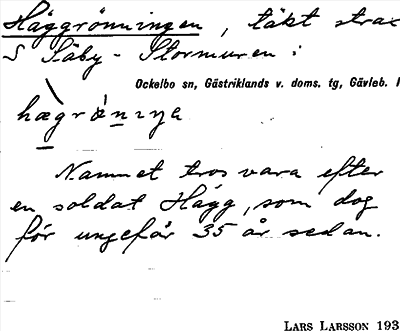 Häggrönningen, täkt strax
S Säby-Stormuren:
Ockelbo sn, Gästriklands v. doms. tg, Gävleb.
Namnet tros vara efter
en soldat Hägg, som dog
för ungefär 35 år sedan.
LARS LARSSON 193